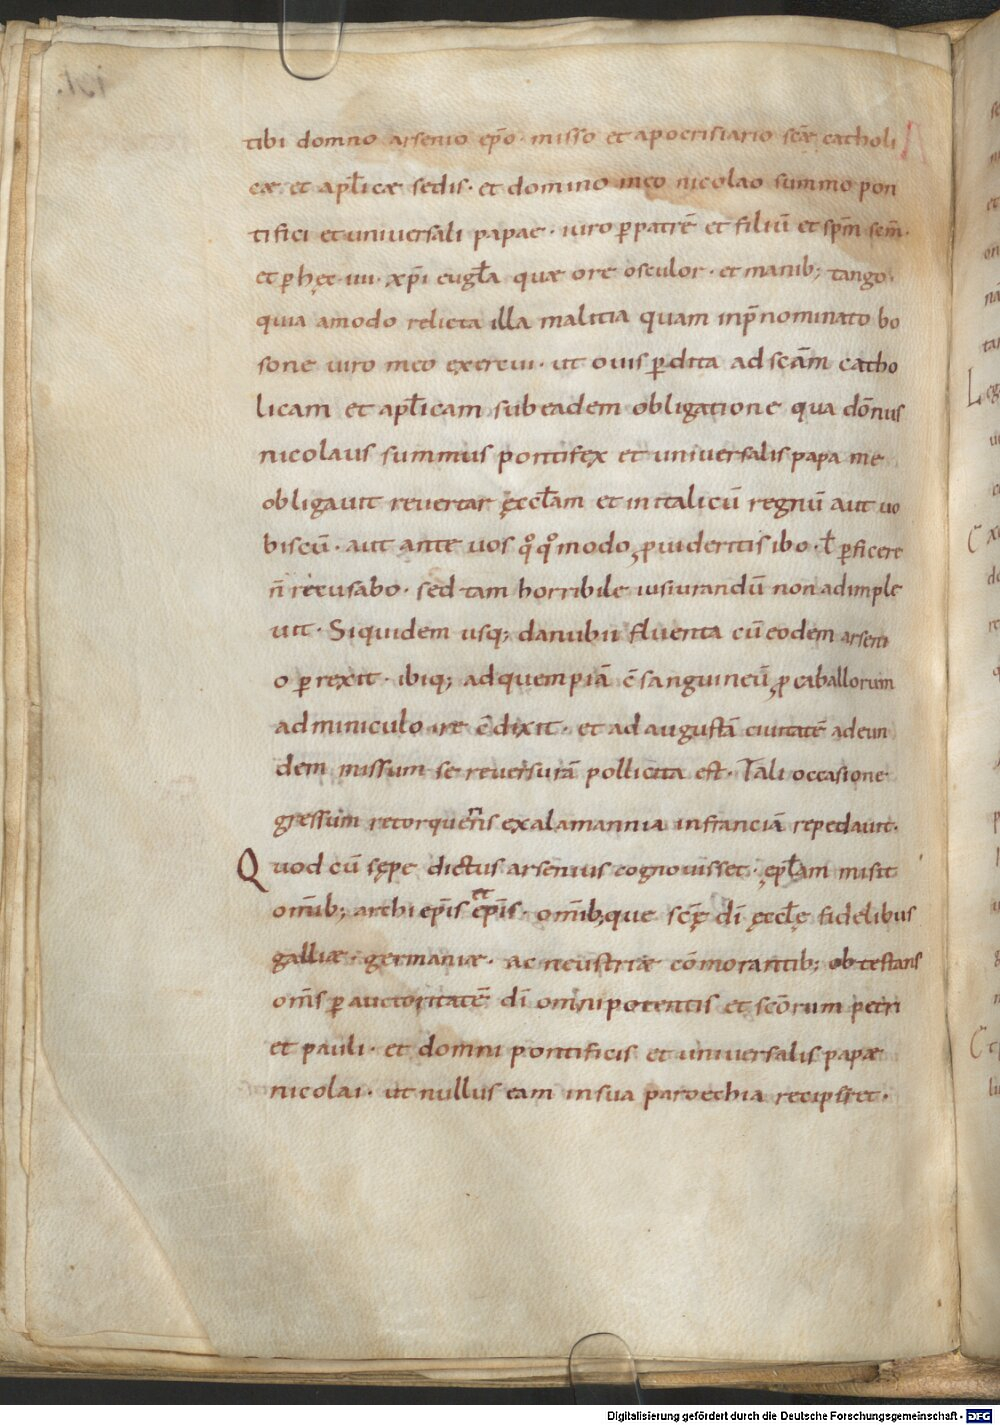 tibi domno arsenio ep̄o · misso et apocrisiario sc̄æ catholi
cæ et apl̄icæ sedis · et domino meo nicolao summo pon
tifici et universali papae · iuro ꝑ patrē et filiū et sp̄m sc̄m ·
et ꝑ hęc · iiii · xp̄i eugl̄a quæ ore osculor · et manib; tango ·
quia amodo relicta illa malitia quam in p̄nominato bo
sone viro meo exercui · ut ovis ꝑdita ad scām catho
licam et apl̄icam sub eadem obligatione qua dōnus
nicolaus summus pontifex et universalis papa me
obligavit revertar ęccl̄am et in italicū regnū aut vo
biscū · aut ante vos qͦqͦmodo ꝓvideritis ibo · ł ꝑficere
n̄ recusabo · sed tam horribile iusiurandū non adimple
vit · Siquidem usq; danubii fluenta cū eodem arseni
o ꝑrexit · ibiq; ad quempiā c̄sanguineū ꝓ caballorum
adminiculo ire c̄dixit · et ad augustā civitatē ad eun
dem missum se reversurā pollicita est · Tali occasione
gressum retorquen̄s ex alamannia in franciā repedavit ·
Quod cū sępe dictus arsenius cognovisset · ępl̄am misit
om̄ib; archiep̄is et ep̄is · om̄ib;que sc̄ę dī ęccl̄ę fidelibus
galliæ · germaniæ · ac neustriæ cōmorantib; obtestans
om̄s ꝑ auctoritatē dī omnipotentis et scōrum petri
et pauli · et domni pontificis et universalis papæ
nicolai · ut nullus eam in sua paroechia reciperet ·
Digitalisierung gefördert durch die Deutsche Forschungsgemeinschaft - DFG